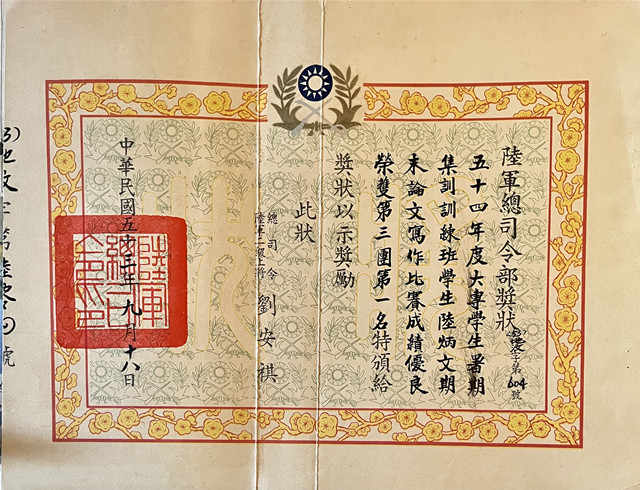 陸軍總司令部獎狀
字第604號
五十四年度大專學生暑期
集訓訓練班學生陸炳文期
末論文寫作比賽成績優良
榮雙第三團第一名特頒給
獎狀以示獎勵
此狀
總司令
陸軍二級上將
劉安祺
中華民國五十三年九月十八日
陸軍
總司
令部印